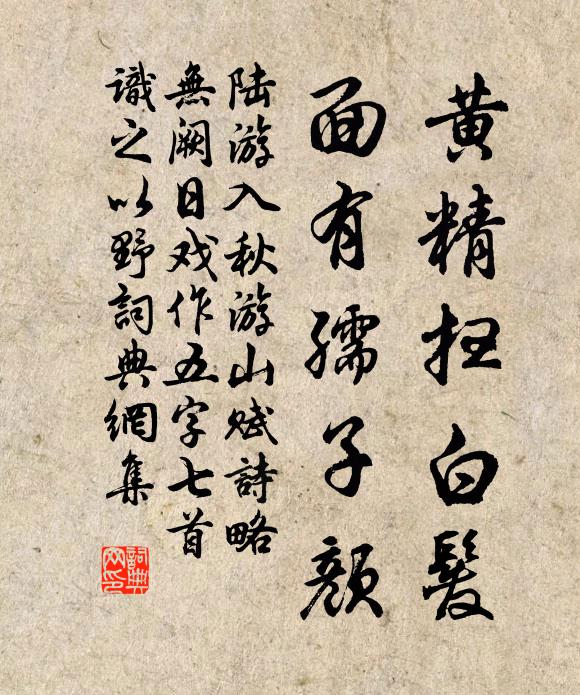 黄精扫白髮
面有孺子顔
陆游入秋游山赋詩略
無阙日戏作五字七首
識之以野詞典網集
詞典网印